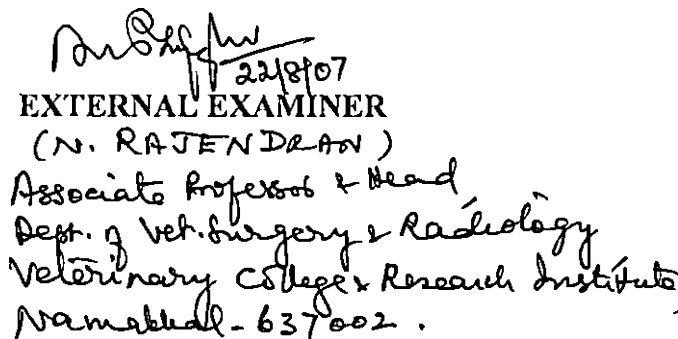 22/8/07
EXTERNAL EXAMINER
(N. RAJENDRAN)
Associate Professor & Head
Dept. of Vet. Surgery & Radiology
Veterinary College & Research Institute
Namakkal - 637 002.